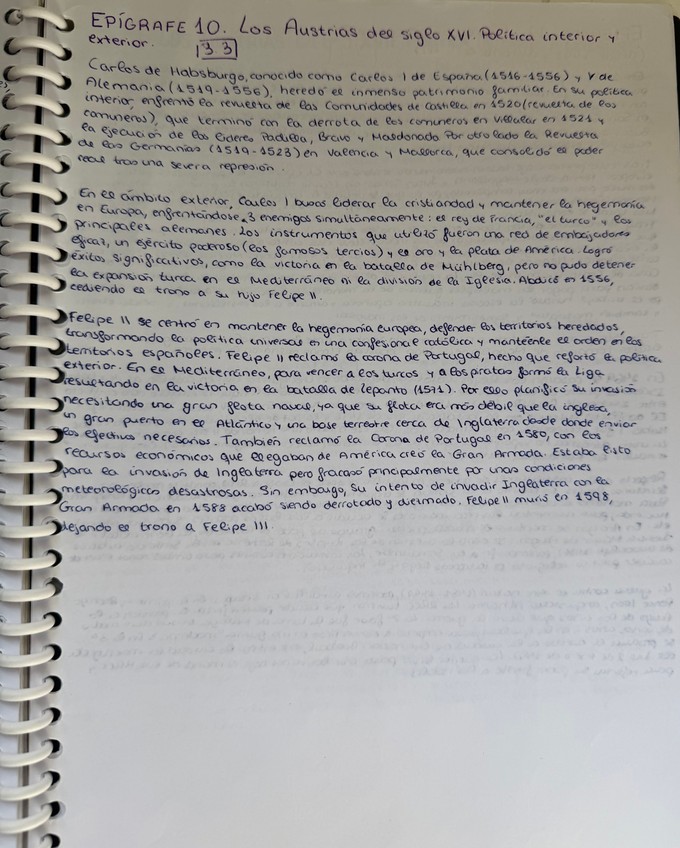 EPÍGRAFE 10. Los Austrias del siglo XVI. Política interior y
exterior. 133
Carlos de Habsburgo, conocido como Carlos I de España (1516-1556) y V de
Alemania (1519-1556), heredó el inmenso patrimonio familiar. En su política
interior, enfrentó la revuelta de las Comunidades de Castilla en 1520 (revuelta de los
comuneros), que terminó con la derrota de los comuneros en Villalar en 1521 y
la ejecución de los líderes Padilla, Bravo y Maldonado. Por otro lado la Revuelta
de las Germanías (1519-1523) en Valencia y Mallorca, que consolidó el poder
real tras una severa represión.
En el ámbito exterior, Carlos I busca liderar la cristiandad y mantener la hegemonía
en Europa, enfrentándose a 3 enemigos simultáneamente: el rey de Francia, "el turco" y los
principales alemanes. Los instrumentos que utilizó fueron una red de embajadores
eficaz, un ejército poderoso (los famosos tercios) y el oro y la plata de América. Logró
éxitos significativos, como la victoria en la batalla de Mühlberg, pero no pudo detener
la expansión turca en el Mediterráneo ni la división de la Iglesia. Abdicó en 1556,
cediendo el trono a su hijo Felipe II.
Felipe II se centró en mantener la hegemonía europea, defender los territorios heredados,
transformando la política universal en una confesional católica y mantenerle el orden en los
territorios españoles. Felipe II reclamó la corona de Portugal, hecho que reforzó la política
exterior. En el Mediterráneo, para vencer a los turcos y a los piratas formó la Liga
resultando en la victoria en la batalla de Lepanto (1571). Por ello planificó su invasión
necesitando una gran flota naval, ya que su flota era más débil que la inglesa,
un gran puerto en el Atlántico y una base terrestre cerca de Inglaterra desde donde enviar
los efectivos necesarios. También reclamó la Corona de Portugal en 1580, con los
recursos económicos que llegaban de América creó la Gran Armada. Estaba listo
para la invasión de Inglaterra pero fracasó principalmente por unas condiciones
meteorológicas desastrosas. Sin embargo, su intento de invadir Inglaterra con la
Gran Armada en 1588 acabó siendo derrotado y diezmado. Felipe II murió en 1598,
dejando el trono a Felipe III.